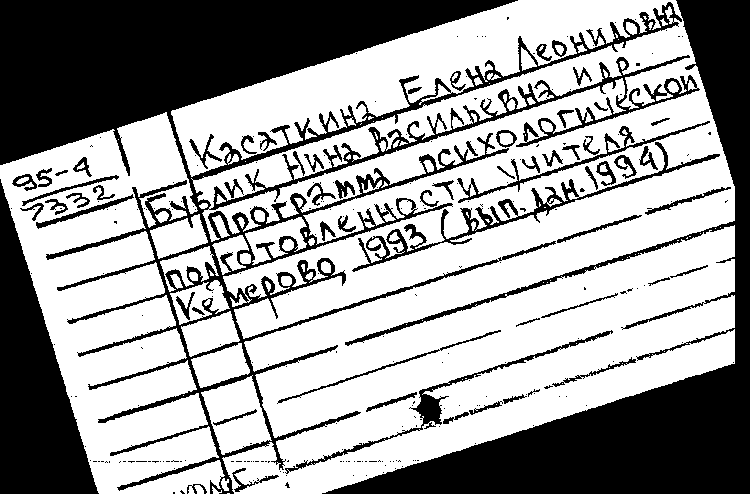 95-4
7332
Касаткина Елена Леонидовна
Бублик, Нина Васильевна и др.
Программа психологической
подготовленности учителя. –
Кемерово, 1993 (вып. дан. 1994)